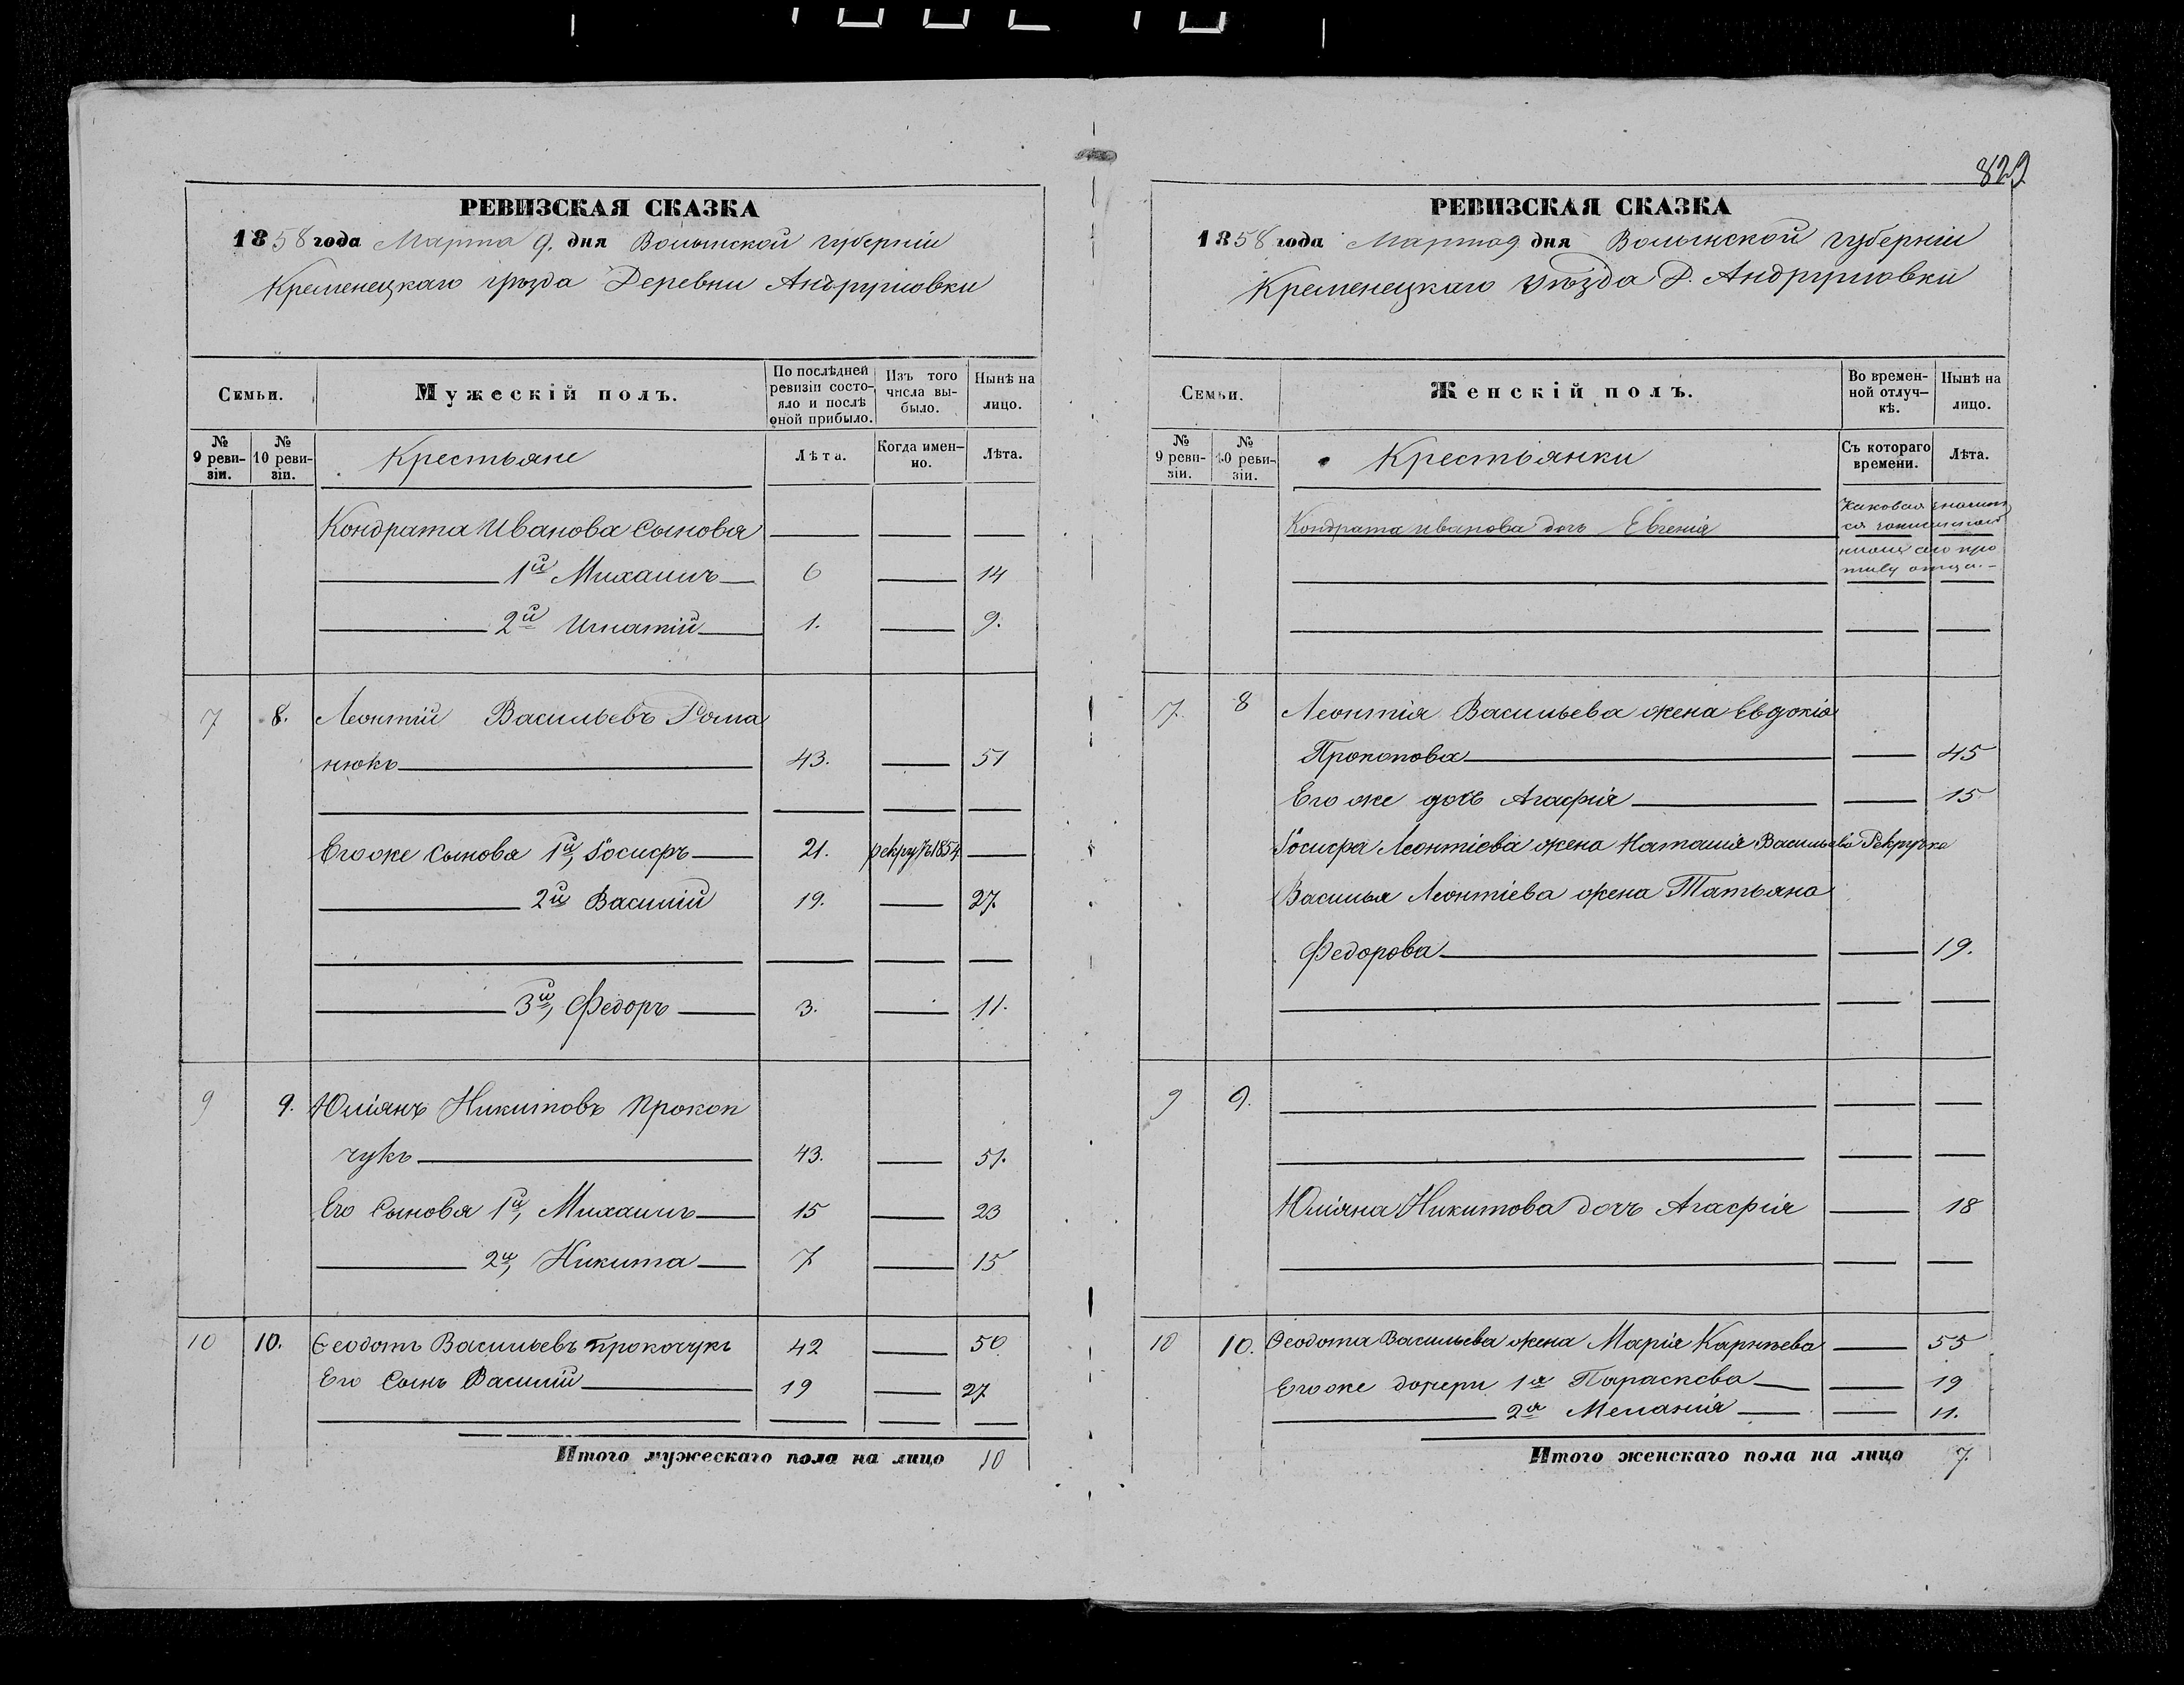 829
РЕВИЗСКАЯ СКАЗКА
1858 года Марта 9. дня Волынской губерніи
Кременецкаго уѣзда Деревни Андрушовки
Семьи.
Мужескій полъ.
По послѣдней ревизіи состояло и послѣ оной прибыло.
Изъ того числа выбыло.
Нынѣ на лицо.
№ 9 ревизіи.
№ 10 ревизіи.
Крестьяне
Лѣта.
Когда именно.
Лѣта.
Кондрата Иванова Сыновя
1й Михаилъ 6 14
2й Игнатій 1. 9.
7 8. Леонтій Васильевъ Рома
нюкъ 43. 51
Егоже сыновя 1й, Іосифъ 21. рекрут 1854
2й Василій 19. 27.
3й, Федоръ 3. 11.
9 9. Юліянъ Никитовъ Прокоп
чукъ 43. 51.
Его Сыновя 1й, Михаилъ 15 23
2й, Никита 7 15
10 10. Ѳеодотъ Васильевъ Прокочукъ 42 50
Его Сынъ Василій 19 27
Итого мужескаго пола на лицо 10
РЕВИЗСКАЯ СКАЗКА
1858 года Марта 9 дня Волынской губерніи
Кременецкаго уѣзда Д. Андрушовки
Семьи.
Женскій полъ.
Во временной отлучкѣ.
Нынѣ на лицо.
№ 9 ревизіи.
№ 10 ревизіи.
Крестьянки
Съ котораго времени.
Лѣта.
Кондрата Иванова дочь Евгенія
Каковая значит
ся
тиву отца.
7. 8 Леонтія Васильева жена Евдокія
Прокопова 45
Его же дочь Агафія 15
Іосифа Леонтіева жена Наталія Васильева Рекрутка
Василья Леонтіева жена Татьяна
Федорова 19.
9 9.
Юліяна Никитова дочъ Агафія 18
10 10. Ѳеодота Васильева жена Марія Карпѣева 55
Егоже дочери 1я Параскева 19
2я Меланія 11.
Итого женскаго пола на лицо 7.